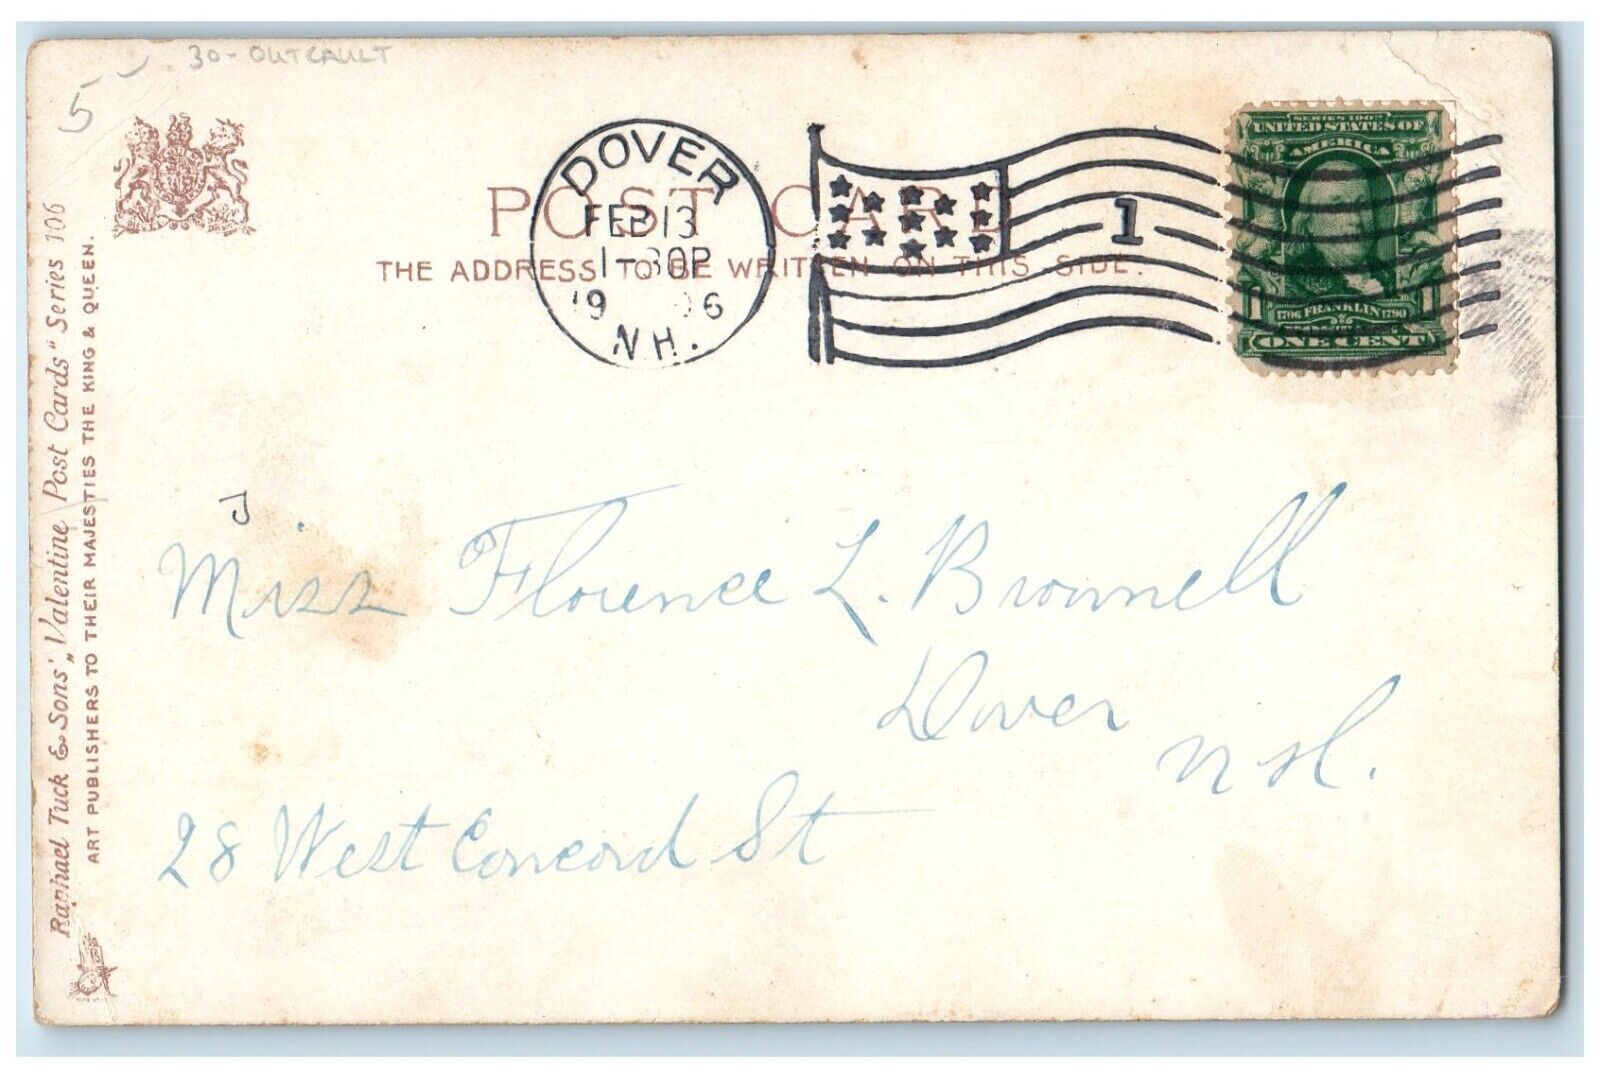 30-OUTCAULT
5
POST CARD
THE ADDRESS TO BE WRITTEN ON THIS SIDE.
DOVER
FEB 13
1-30P
19 06
N.H.
1
SERIES 1902
UNITED STATES OF
AMERICA
1 1706 FRANKLIN 1790 1
ONE CENT
Raphael Tuck & Sons' „Valentine Post Cards" Series 106
ART PUBLISHERS TO THEIR MAJESTIES THE KING & QUEEN.
Miss Florence L. Brownell
Dover
N.H.
28 West Concord St